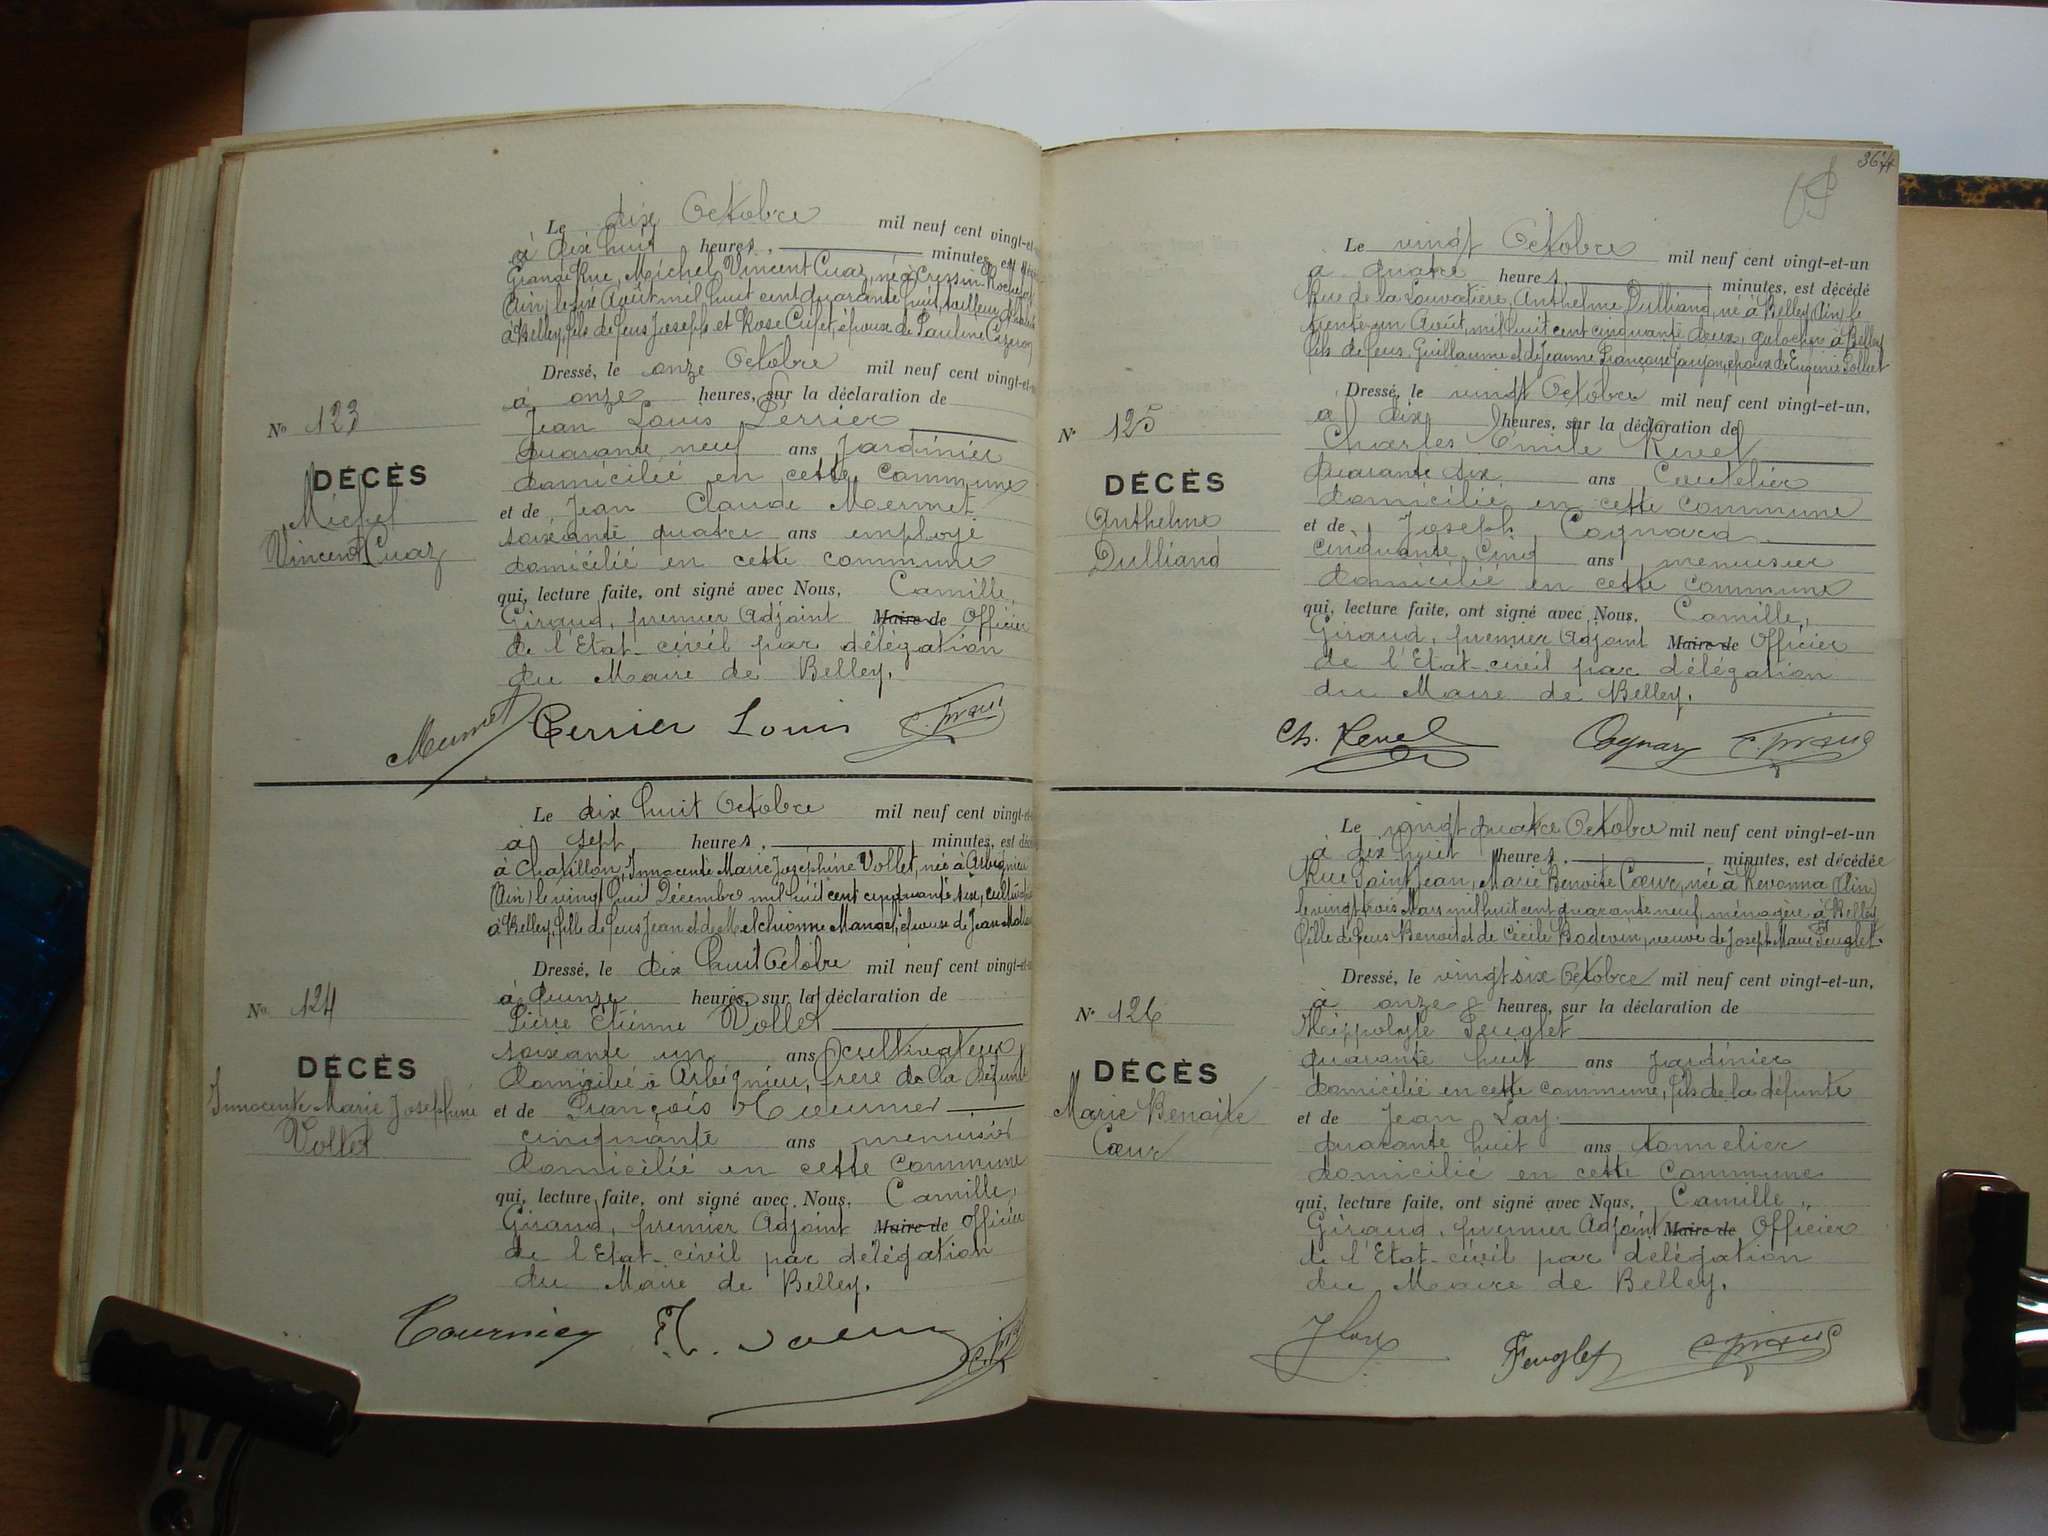 Le dix Octobre mil neuf cent vingt-et-
à dix huit heures, minutes, est
Grande Rue, Michel Vincent Cuaz, né à Cressin-Rochefort
(Ain) le six Août mil huit cent quarante huit, tailleur
à Belley, fils de feus Joseph et Rose Cufet, époux de Pauline
Dressé, le onze Octobre mil neuf cent vingt-et-
à onze heures, sur la déclaration de
Jean Louis Perrier
quarante neuf ans Jardinier
domicilié en cette commune
et de Jean Claude Mermet
soixante quatre ans employé
domicilié en cette commune
qui, lecture faite, ont signé avec Nous, Camille,
Giraud, premier Adjoint Maire de Officier
de l'Etat-civil par délégation
du Maire de Belley.
Mermet Perrier Louis C. Giraud
No 123
DÉCÈS
Michel
Vincent Cuaz
Le dix huit Octobre mil neuf cent vingt-et-
à sept heures, minutes, est
à Chatillon, Innocente Marie Joséphine Vollet, née à Arbignieu
(Ain) le vingt huit Décembre mil huit cent cinquante six,
à Belley, fille de feus Jean et de Melchionne Mandel, épouse de Jean
Dressé, le dix huit Octobre mil neuf cent vingt-et-
à quinze heures, sur la déclaration de
Pierre Etienne Vollet
soixante un ans cultivateur
domicilié à Arbignieu, frère de la défunte
et de François Tournier
cinquante ans menuisier
domicilié en cette commune
qui, lecture faite, ont signé avec Nous, Camille,
Giraud, premier Adjoint Maire de Officier
de l'Etat-civil par délégation
du Maire de Belley.
Tournier
No 124
DÉCÈS
Innocente Marie Joséphine
Vollet
364
Le vingt Octobre mil neuf cent vingt-et-un
à quatre heures, minutes, est décédé
Rue de la Louvatière, Anthelme Dulliand, né à Belley (Ain) le
trente-un Août, mil huit cent cinquante deux, galochier à Belley
fils de feus Guillaume et de Jeanne Françoise époux de Eugénie Pollet
Dressé, le vingt Octobre mil neuf cent vingt-et-un,
à dix heures, sur la déclaration de
Charles Emile Revel
quarante six ans Coutelier
domicilié en cette commune
et de Joseph Cognard
cinquante cinq ans menuisier
domicilié en cette commune
qui, lecture faite, ont signé avec Nous, Camille,
Giraud, premier Adjoint Maire de Officier
de l'Etat-civil par délégation
du Maire de Belley.
Ch. Revel Cognard C. Giraud
No 125
DÉCÈS
Anthelme
Dulliand
Le vingt quatre Octobre mil neuf cent vingt-et-un
à dix huit heures, minutes, est décédée
Rue Saint Jean, Marie Benoite Cœur, née à Revonna (Ain)
le vingt trois Mars mil huit cent quarante neuf, ménagère à Belley
fille de feus Benoit et de Cécile Bodevin, veuve de Joseph Marie Feuglet.
Dressé, le vingt six Octobre mil neuf cent vingt-et-un,
à onze heures, sur la déclaration de
Hippolyte Feuglet
quarante huit ans jardinier
domicilié en cette commune, fils de la défunte
et de Jean Lay
quarante huit ans tonnelier
domicilié en cette commune
qui, lecture faite, ont signé avec Nous, Camille,
Giraud, premier Adjoint Maire de Officier
de l'Etat-civil par délégation
du Maire de Belley.
J Lay Feuglet C. Giraud
No 126
DÉCÈS
Marie Benoite
Cœur